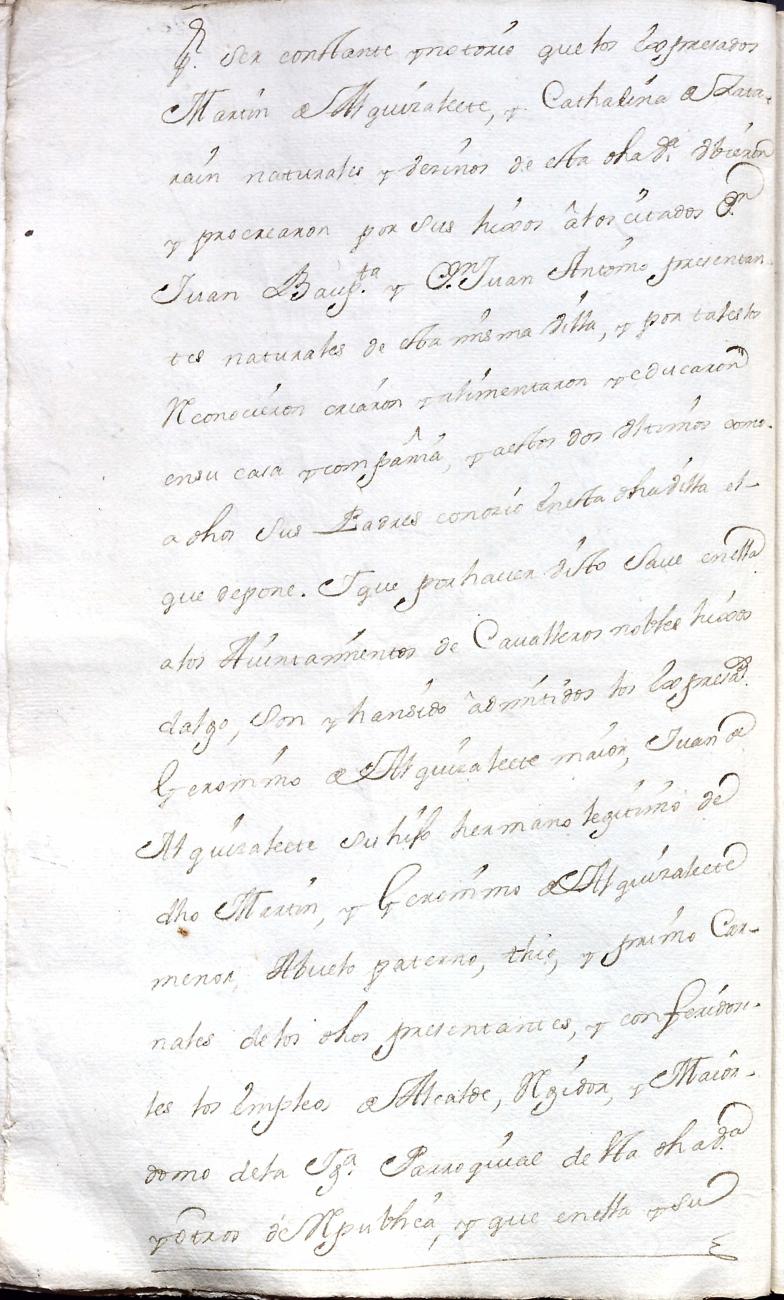 Pr. ser constante y notorio que los Expresados
Martin de Alquizalete, y Cathalina de Zata-
rain naturales y vezinos de esta dha va. obieron
y procrearon por sus hixos â los citados Dn.
Juan Baupta. y Dn. Juan Antonio presentan-
tes naturales de esta misma villa, y por tales los
Reconocieron criaron y alimentaron y educaron
en su casa y compañia, y a estos dos vltimos como-
a dhos sus Padres conozio en esta dha villa el-
que depone. Y que por haver visto save en ella
a los Aiuntamientos de Cavalleros nobles hixos
dalgo, son y han sido âdmitidos los Expresads.
Geronimo de Alquizalete maior, Juan de
Alquizalete su hijo hermano legitimo de
dho Martin, y Geronimo de Alquizalete
menor, Abuelo paterno, thio, y primo Car-
nales de los dhos presentantes, y conferidos-
les los Empleos de Alcalde, Regidor, y Maior-
domo de la Yga. Parroquial de esta dha va.
y otros de Republica, y que en ella y su